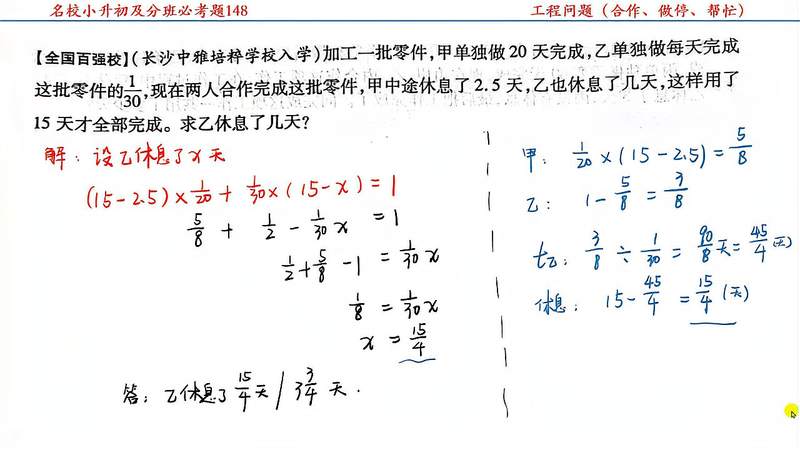 名校小升初及分班必考题148
工程问题（合作、做停、帮忙）
【全国百强校】(长沙中雅培粹学校入学)加工一批零件,甲单独做20天完成,乙单独做每天完成
这批零件的1/30,现在两人合作完成这批零件,甲中途休息了2.5天,乙也休息了几天,这样用了
15天才全部完成。求乙休息了几天?
解：设乙休息了x天
(15-2.5)×1/20+1/30×(15-x)=1
5/8+1/2-1/30x=1
1/2+5/8-1=1/30x
1/8=1/30x
x=15/4
答：乙休息了15/4天/3 3/4天.
甲：1/20×(15-2.5)=5/8
乙：1-5/8=3/8
t乙：3/8÷1/30=90/8天=45/4(天)
休息：15-45/4=15/4(天)